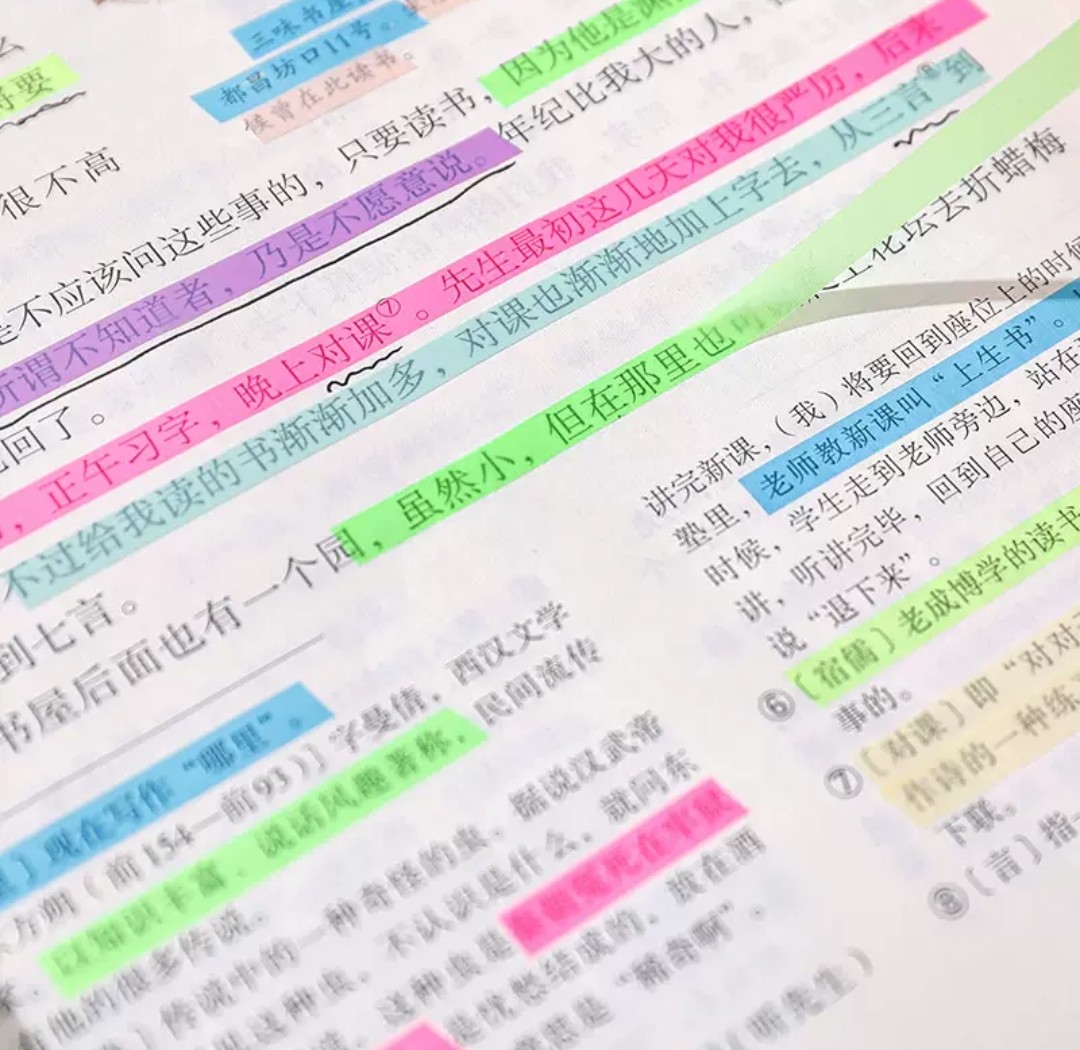 三味书屋
都昌坊口11号。
侯曾在此读书。
将要
因为他是渊
很不高
是不应该问这些事的，只要读书，
年纪比我大的人，
所谓不知道者，乃是不愿意说。
回了。
，正午习字，晚上对课⑦。先生最初这几天对我很严厉，后来
不过给我读的书渐渐加多，对课也渐渐地加上字去，从三言⑧到
到七言。
书屋后面也有一个园，虽然小，但在那里也可
上花坛去折蜡梅
】现在写作“哪里”。
方朔（前154—前93）］字曼倩，西汉文学
以知识丰富、说话风趣著称，
民间流传
他的很多传说。
］传说中的一种奇怪的虫。据说汉武帝
见这种虫，不认识是什么，就问东
这种虫是
是忧愁结成的，放在酒
意思是“稀奇啊”。
讲完新课，（我）将要回到座位上的时候
塾里，老师教新课叫“上生书”。
时候，学生走到老师旁边，站在
讲，听讲完毕，回到自己的座
说“退下来”。
⑥〔宿儒〕老成博学的读书
事的。
⑦〔对课〕即“对对子
作诗的一种练
下联。
⑧〔言〕指